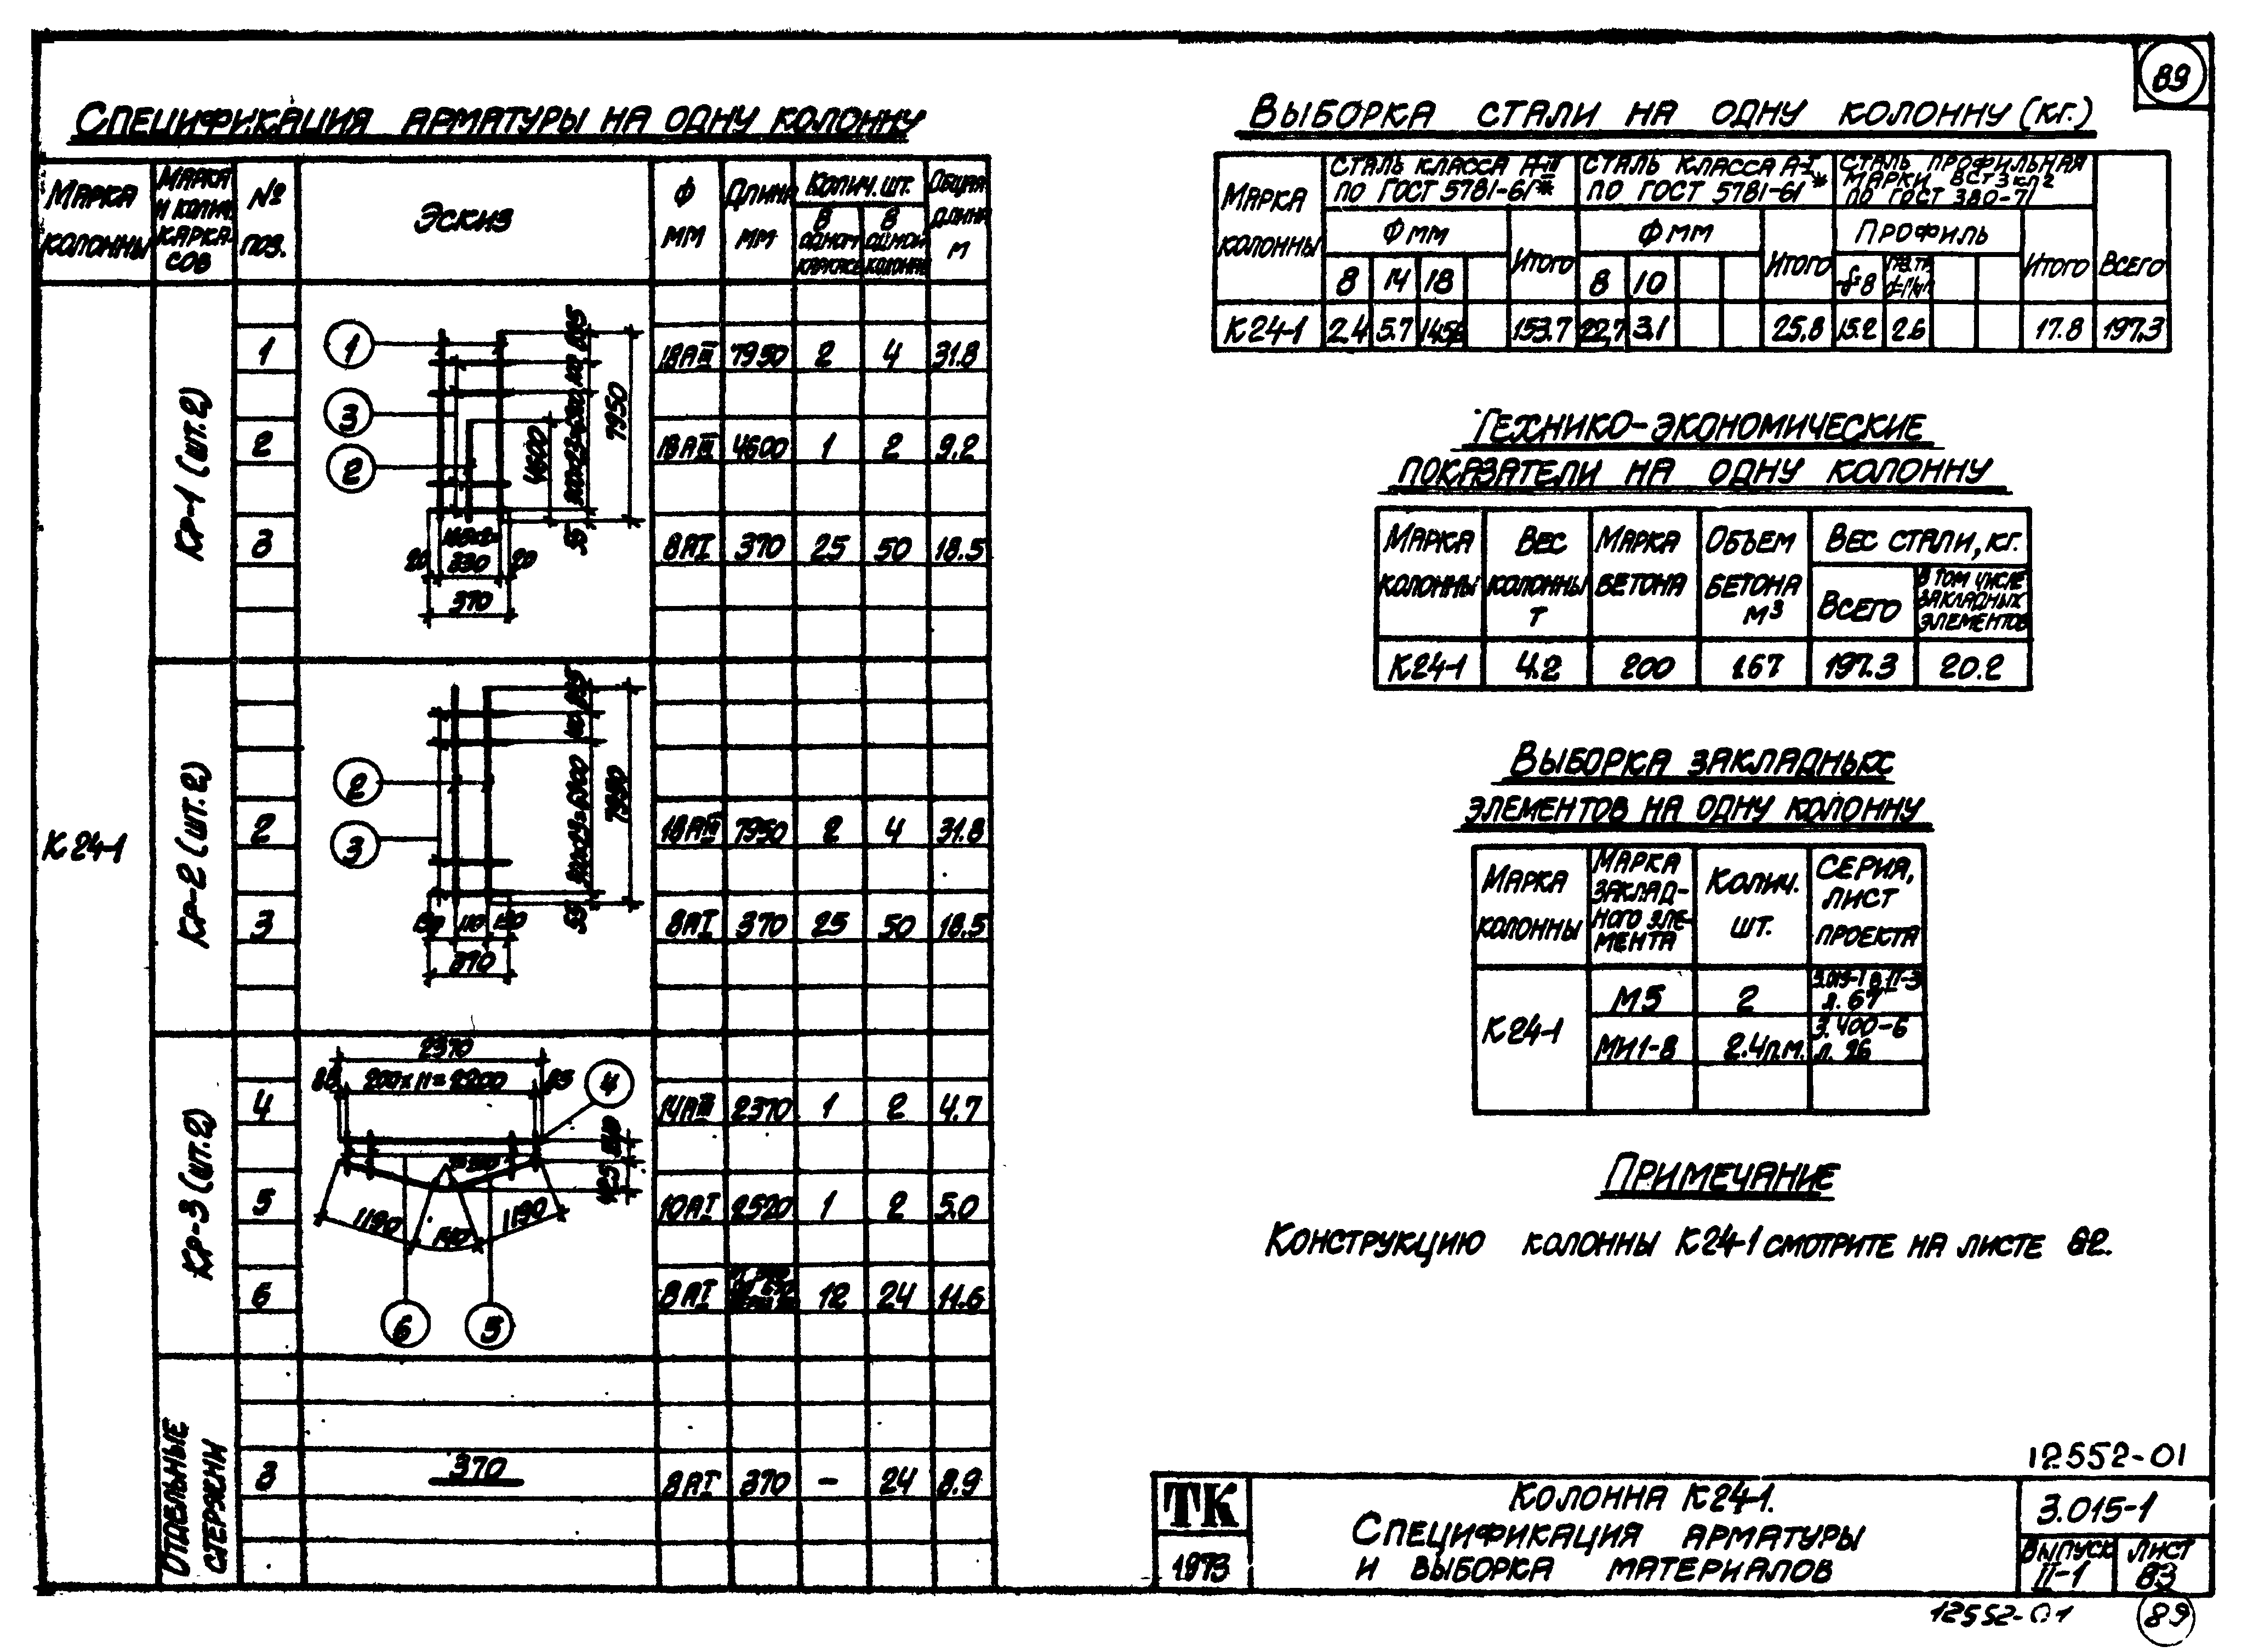 89
Спецификация арматуры на одну колонну
Марка колонны
Марка и колич. каркасов
№ поз.
Эскиз
Ф мм
Длина мм
Колич. шт.
в одном каркасе
в одной колонне
Общая длина м
К 24-1
Кр-1 (шт. 2)
1 18АIII 7950 2 4 31.8
2 18АIII 4600 1 2 9.2
3 8АI 370 25 50 18.5
1
3
2
4600
7950
55
20 330 20
370
Кр-2 (шт. 2)
2 18АIII 7950 2 4 31.8
3 8АI 370 25 50 18.5
2
3
7950
55
130 110 130
370
Кр-3 (шт. 2)
4 14АIII 2370 1 2 4.7
5 10АI 2520 1 2 5.0
6 8АI 12 24 11.6
2370
200х11=2200
4
1190 140 1190
6
5
Отдельные стержни
3 370 8АI 370 – 24 8.9
Выборка стали на одну колонну (кг.)
Марка колонны
Сталь класса А-III по ГОСТ 5781-61*
Сталь класса А-I по ГОСТ 5781-61*
Сталь профильная марки ВСт3кп2 по ГОСТ 380-71
Ф мм
Итого
Ф мм
Итого
Профиль
Итого
Всего
8 14 18 8 10 -δ=8
К 24-1 2.4 5.7 145.6 153.7 22.7 3.1 25.8 15.2 2.6 17.8 197.3
Технико-экономические
показатели на одну колонну
Марка колонны
Вес колонны т
Марка бетона
Объем бетона м3
Вес стали, кг.
Всего
В том числе закладных элементов
К 24-1 4.2 200 1.67 197.3 20.2
Выборка закладных
элементов на одну колонну
Марка колонны
Марка закладного элемента
Колич. шт.
Серия, лист проекта
К 24-1
М5 2 л. 67
МИ1-8 2.4п.м. 3.400-6 л. 26
Примечание
Конструкцию колонны К 24-1 смотрите на листе 82.
12552-01
ТК
1973
Колонна К 24-1.
Спецификация арматуры
и выборка материалов
3.015-1
Выпуск II-1
Лист 83
12552-01
89